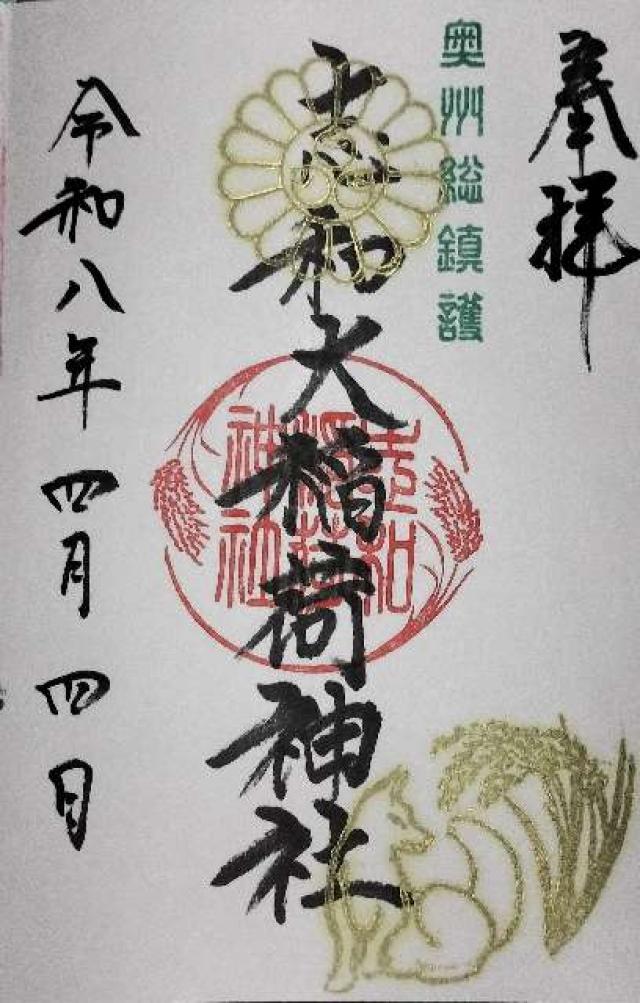 奉拝
奥州総鎮護
志和大稲荷神社
志和
稲荷
神社
令和八年四月四日